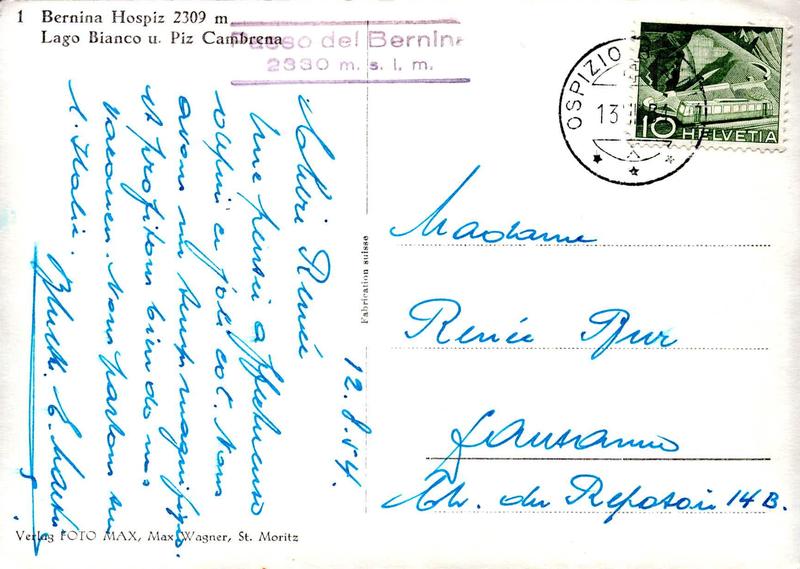 1 Bernina Hospiz 2309 m
Lago Bianco u. Piz Cambrena
Passo del Bernina
2330 m. s. l. m.
OSPIZIO
13
10 HELVETIA
12.8.54.
Chère Renée
Une pensée affectueuse
de ce joli col. Nous
avons un temps magnifique
et profitons bien de nos
vacances. Nous partons sur
l'Italie.
Fabrication suisse
Madame
Renée Bur
Lausanne
Ch. du Reposoir 14 B.
Verlag FOTO MAX, Max Wagner, St. Moritz